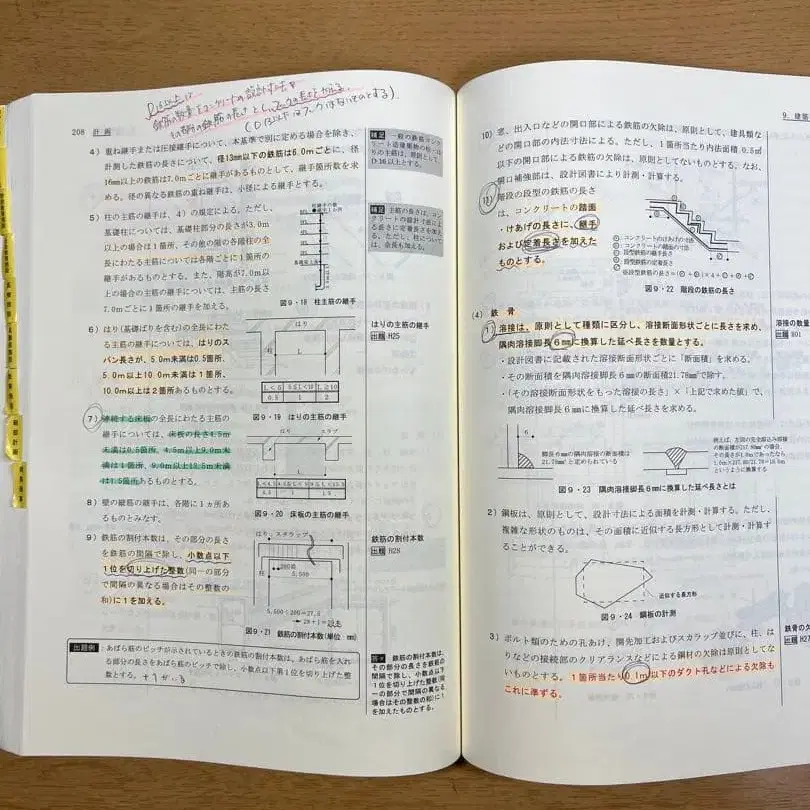 208 計画
4) 重ね継手または圧接継手について、本基準で別に定める場合を除き、
計測した鉄筋の長さについて、径13mm以下の鉄筋は6.0mごとに、径
16mm以上の鉄筋は7.0mごとに継手があるものとして、継手箇所数を求
める。径の異なる鉄筋の重ね継手は、小径による継手とする。
補足 一般の鉄筋コンク
リート造建築物の柱・は
りの主筋は、原則として、
D16以上とする。
5) 柱の主筋の継手は、4) の規定による。ただし、
基礎柱については、基礎柱部分の長さが3.0m
以上の場合は1箇所、その他の階の各階柱の全
長にわたる主筋については各階ごとに1箇所の
継手があるものとする。また、階高が7.0m以
上の場合の主筋の継手については、主筋の長さ
7.0mごとに1箇所の継手を加える。
図9・18 柱主筋の継手
補足 主筋の長さは、コン
クリートの設計寸法によ
る長さに定着長さを加え
る。ただし、柱について
は、余長も加える。
6) はり(基礎ばりを含む)の全長にわた
る主筋の継手については、はりのス
パン長さが、5.0m未満は0.5箇所、
5.0m以上10.0m未満は1箇所、
10.0m以上は2箇所あるものとする。
はり
柱
L
L<5 5≦L<10 L≧10
0.5 1 2
図9・19 はりの主筋の継手
はりの主筋の継手
出題 H25
7) 連続する床板の全長にわたる主筋の
継手については、床板の長さ4.5m
未満は0.5箇所、4.5m以上9.0m未
満は1箇所、9.0m以上13.5m未満
は1.5箇所あるものとする。
はり スラブ
図9・20 床板の主筋の継手
8) 壁の縦筋の継手は、各階に1ヵ所あ
るものとみなす。
9) 鉄筋の割付本数は、その部分の長さ
を鉄筋の間隔で除し、小数点以下
1位を切り上げた整数(同一の部分
で間隔の異なる場合はその整数の
和)に1を加える。
はり スタラップ
柱
@200
5,500
5,500÷200=27.5
→28+1=
図9・21 鉄筋の割付本数(単位 mm)
鉄筋の割付本数
出題 H28
出題例: あばら筋のピッチが示されているときの鉄筋の割付本数は、あばら筋を入れ
る部分の長さをあばら筋のピッチで除し、小数点以下第1位を切り上げた整
数とする。
答× 鉄筋の割付本数は、
その部分の長さを鉄筋の
間隔で除し、小数点以下
1位を切り上げた整数(同
一の部分で間隔の異なる
場合はその整数の和)に1
を加えたものとする。
9. 建築
10) 窓、出入口などの開口部による鉄筋の欠除は、原則として、建具類な
どの開口部の内法寸法による。ただし、1箇所当たり内法面積 0.5㎡
以下の開口部による鉄筋の欠除は、原則としてないものとする。なお、
開口補強筋は、設計図書により計測・計算する。
11) 階段の段型の鉄筋の長さ
は、コンクリートの踏面
・けあげの長さに、継手
および定着長さを加えた
ものとする。
ⓐ コンクリートのけあげの寸法
ⓑ コンクリートの踏面の寸法
ⓒ 段型鉄筋の継手の長さ
ⓓ 段型鉄筋の定着長さ
図9・22 階段の鉄筋の長さ
(4) 鉄骨
1) 溶接は、原則として種類に区分し、溶接断面形状ごとに長さを求め、
隅肉溶接脚長6mmに換算した延べ長さを数量とする。
・設計図書に記載された溶接断面形状ごとに「断面積」を求める。
・その断面積を隅肉溶接脚長6mmの断面積21.78m㎡で除す。
・「その溶接断面形状をもった溶接の長さ」×「上記で求めた値」で、
隅肉溶接脚長6mmに換算した延べ長さを求める。
溶接の数量
出題 R01
6
脚長6mmの隅肉溶接の断面積は
21.78m㎡と定められている
図9・23 隅肉溶接脚長6mmに換算した延べ長さとは
2) 鋼板は、原則として、設計寸法による面積を計測・計算する。ただし、
複雑な形状のものは、その面積に近似する長方形として計測・計算す
ることができる。
近似する長方形
図9・24 鋼板の計測
3) ボルト類のための孔あけ、開先加工およびスカラップ並びに、柱、は
りなどの接続部のクリアランスなどによる鋼材の欠除は原則としてな
いものとする。1箇所当たり0.1㎡以下のダクト孔などによる欠除も
これに準ずる。
鉄骨の欠
出題 H27